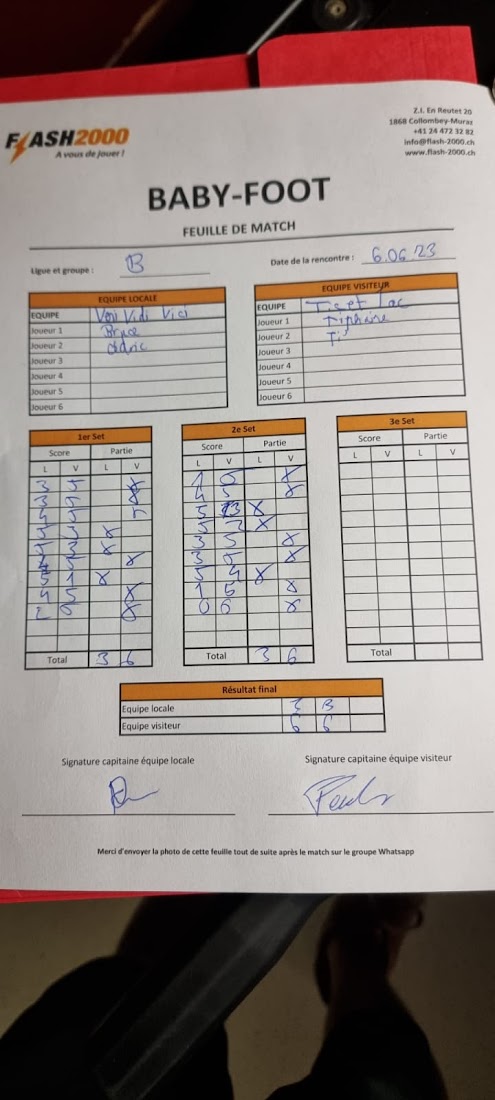 FLASH2000
A vous de jouer !
Z.I. En Reutet 20
1868 Collombey-Muraz
+41 24 472 32 82
info@flash-2000.ch
www.flash-2000.ch
BABY-FOOT
FEUILLE DE MATCH
Ligue et groupe : B
Date de la rencontre : 6.06.23
EQUIPE LOCALE
EQUIPE Veni Vidi Vici
Joueur 1 Bryce
Joueur 2 Cédric
Joueur 3
Joueur 4
Joueur 5
Joueur 6
EQUIPE VISITEUR
EQUIPE
Joueur 1 Tiphaine
Joueur 2
Joueur 3
Joueur 4
Joueur 5
Joueur 6
1er Set
Score Partie
L V L V
3 5 X
3 5 X
5
5 3 X
5 3 X
5 X
5 1 X
4 5 X
2 6 X
Total 3 6
2e Set
Score Partie
L V L V
X
4 5 X
5 3 X
5 2 X
3 5 X
3 5 X
5 4 X
1 5 X
0 6 X
Total 3 6
3e Set
Score Partie
L V L V
Total
Résultat final
Equipe locale 3 3
Equipe visiteur 6 6
Signature capitaine équipe locale
Signature capitaine équipe visiteur
Merci d'envoyer la photo de cette feuille tout de suite après le match sur le groupe Whatsapp